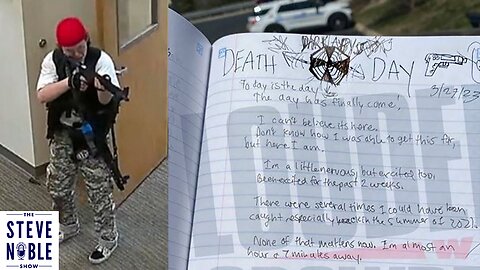 DARK ABYSS
DEATH DAY
3/27/23
Today is the day
The day has finally come!
I can't believe its here.
Don't know how I was able to get this far,
but here I am.
I'm a little nervous, but excited too.
Been excited for the past 2 weeks.
There were several times I could have been
caught especially back in the summer of 2021.
None of that matters now. I'm almost an
hour & 7 minutes away.
THE
STEVE
NOBLE
SHOW